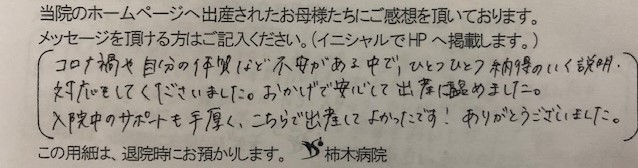 当院のホームページへ出産されたお母様たちにご感想を頂いております。
メッセージを頂ける方はご記入ください。（イニシャルでHPへ掲載します。）
コロナ禍や自分の体質など不安がある中で、ひとつひとつ納得のいく説明・
対応をしてくださいました。おかげで安心して出産に臨めました。
入院中のサポートも手厚く、こちらで出産してよかったです！ありがとうございました。
この用紙は、退院時にお預かりします。 柿木病院